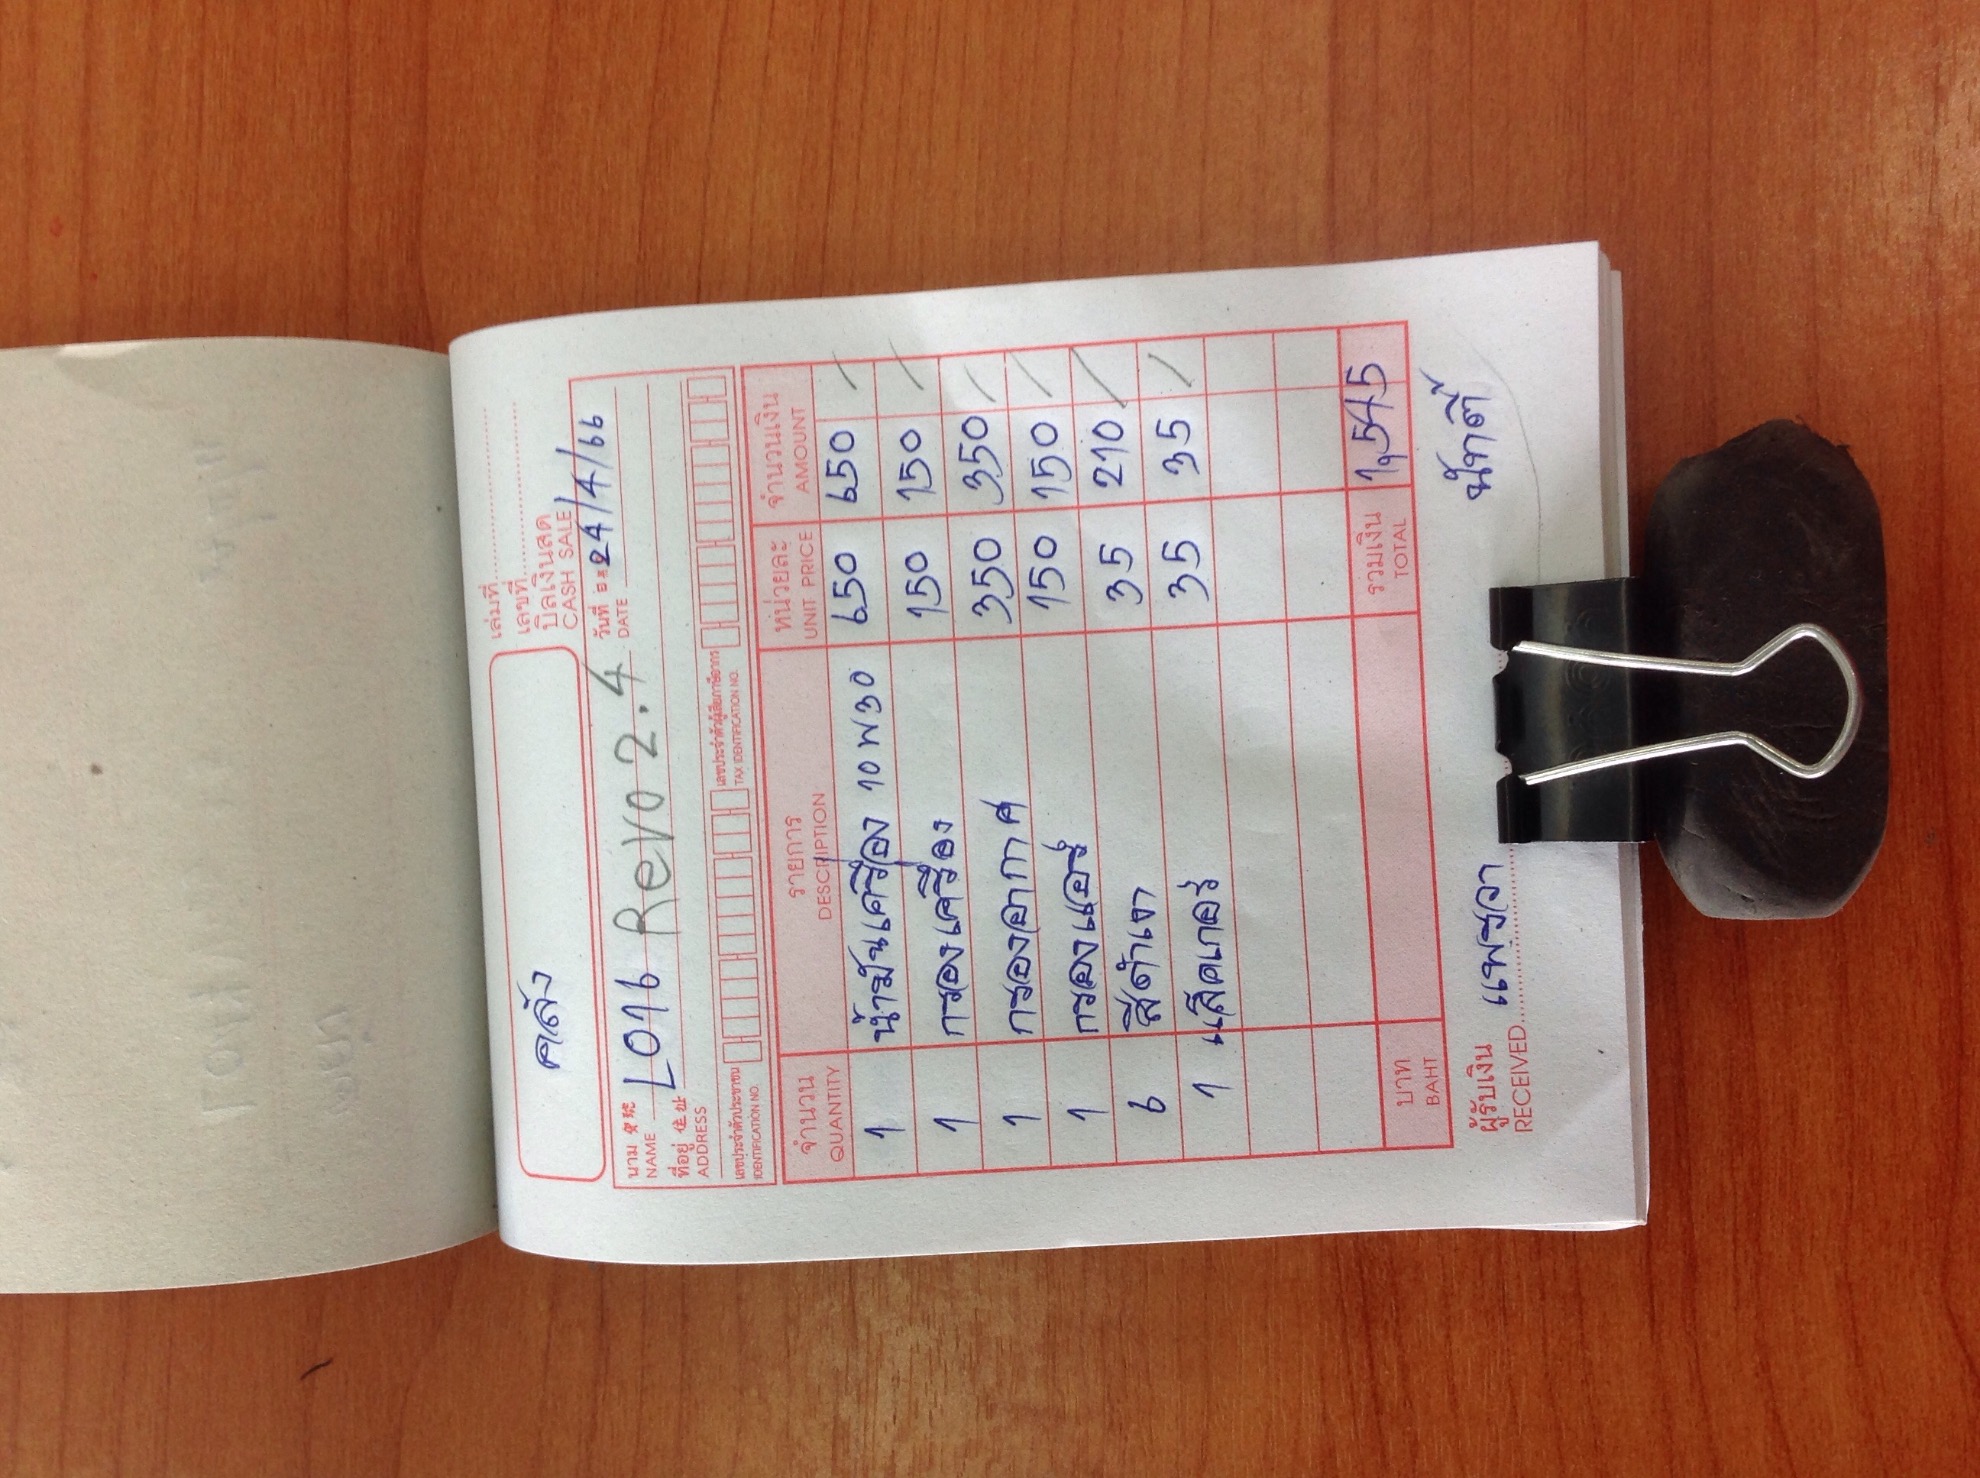 เล่มที่
เลขที่
บิลเงินสด
CASH SALE
คลัง
นาม LO16 Revo 2.4
NAME
วันที่ 24/4/66
DATE
ที่อยู่ 住址
ADDRESS
เลขประจำตัวประชาชน เลขประจำตัวผู้เสียภาษีอากร
IDENTIFICATION NO. TAX IDENTIFICATION NO.
จำนวน รายการ หน่วยละ จำนวนเงิน
QUANTITY DESCRIPTION UNIT PRICE AMOUNT
1 น้ำมันเครื่อง 10W30 650 650
1 กรองเครื่อง 150 150
1 กรองอากาศ 350 350
1 กรองแอร์ 150 150
6 สีดำเงา 35 210
1 แล็คเกอร์ 35 35
บาท รวมเงิน 1,545
BAHT TOTAL
ผู้รับเงิน แพรวา
RECEIVED